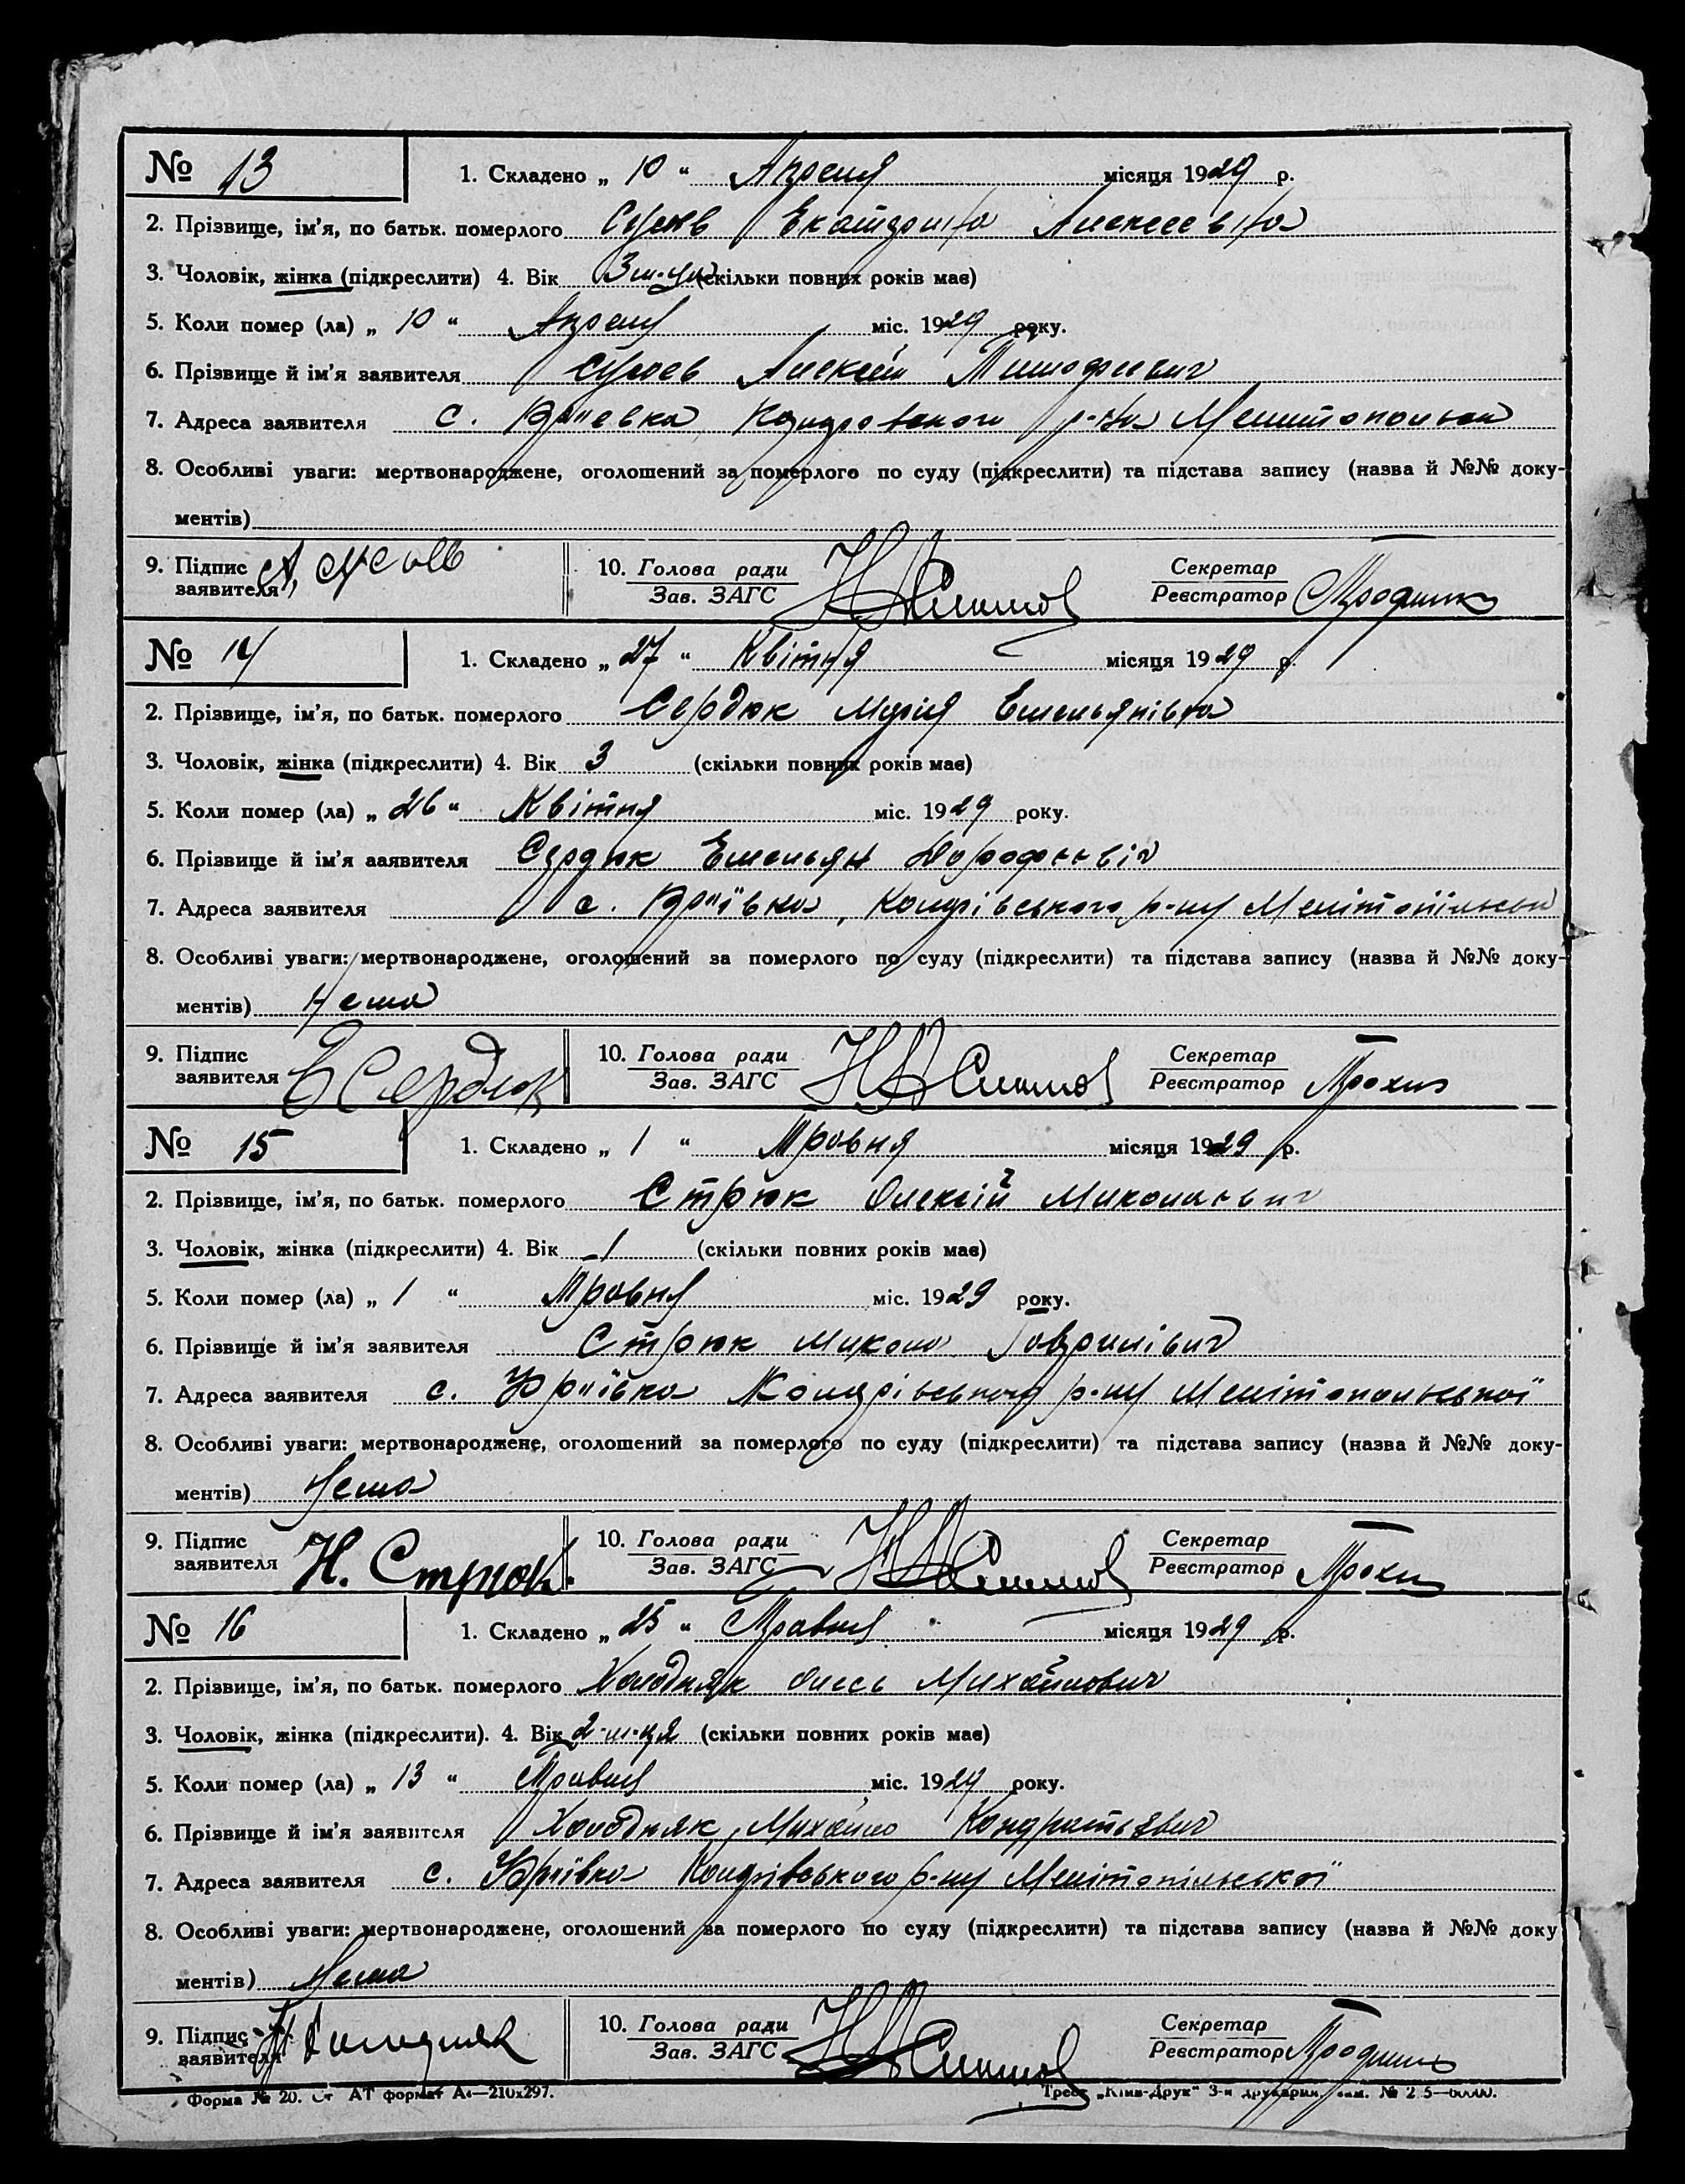 № 13
1. Складено „ 10 “ Апреля місяця 1929 р.
2. Прізвище, ім'я, по батьк. померлого Екатерина Алексеевна
3. Чоловік, жінка (підкреслити) 4. Вік 3 (скільки повних років має)
5. Коли помер (ла) „ 10 “ Апреля міс. 1929 року.
6. Прізвище й ім'я заявителя Алексей Тимофеевич
7. Адреса заявителя с. р-на
8. Особливі уваги: мертвонароджене, оголошений за померлого по суду (підкреслити) та підстава запису (назва й №№ доку-
ментів)
9. Підпис заявителя А.
10. Голова ради Зав. ЗАГС
Секретар Реєстратор
№ 14
1. Складено „ 27 “ Квітня місяця 1929 р.
2. Прізвище, ім'я, по батьк. померлого Сердюк Марія Емельянівна
3. Чоловік, жінка (підкреслити) 4. Вік 3 (скільки повних років має)
5. Коли помер (ла) „ 26 “ Квітня міс. 1929 року.
6. Прізвище й ім'я заявителя Сердюк Емельян
7. Адреса заявителя с. р-ну
8. Особливі уваги: мертвонароджене, оголошений за померлого по суду (підкреслити) та підстава запису (назва й №№ доку-
ментів) Нема
9. Підпис заявителя Е Сердюк
10. Голова ради Зав. ЗАГС
Секретар Реєстратор
№ 15
1. Складено „ 1 “ Травня місяця 1929 р.
2. Прізвище, ім'я, по батьк. померлого Стрюк Олексій Миколаєвич
3. Чоловік, жінка (підкреслити) 4. Вік 1 (скільки повних років має)
5. Коли помер (ла) „ 1 “ Травня міс. 1929 року.
6. Прізвище й ім'я заявителя Стрюк Микола Гаврилівич
7. Адреса заявителя с. р-ну Мелітопольської
8. Особливі уваги: мертвонароджене, оголошений за померлого по суду (підкреслити) та підстава запису (назва й №№ доку-
ментів) Нема
9. Підпис заявителя Н. Стрюк
10. Голова ради Зав. ЗАГС
Секретар Реєстратор
№ 16
1. Складено „ 25 “ Травня місяця 1929 р.
2. Прізвище, ім'я, по батьк. померлого Холодняк Олесь Михайлович
3. Чоловік, жінка (підкреслити). 4. Вік 2 (скільки повних років має)
5. Коли помер (ла) „ 13 “ Травня міс. 1929 року.
6. Прізвище й ім'я заявителя Холодняк Михайло Кондратьевич
7. Адреса заявителя с. р-ну Мелітопільської
8. Особливі уваги: мертвонароджене, оголошений за померлого по суду (підкреслити) та підстава запису (назва й №№ доку
ментів) Нема
9. Підпис заявителя Холодняк
10. Голова ради Зав. ЗАГС
Секретар Реєстратор
Форма № 20. АТ формат А4—210х297. Трест „Київ-Друк“ 3-я друкарня,